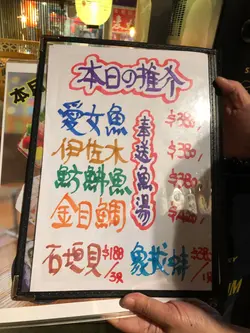 本日の推介
愛女魚 $380/
伊佐木 $380/
魴鮄魚
金目鯛
奉送魚湯
石垣貝 $188/3隻
象拔蚌
本日